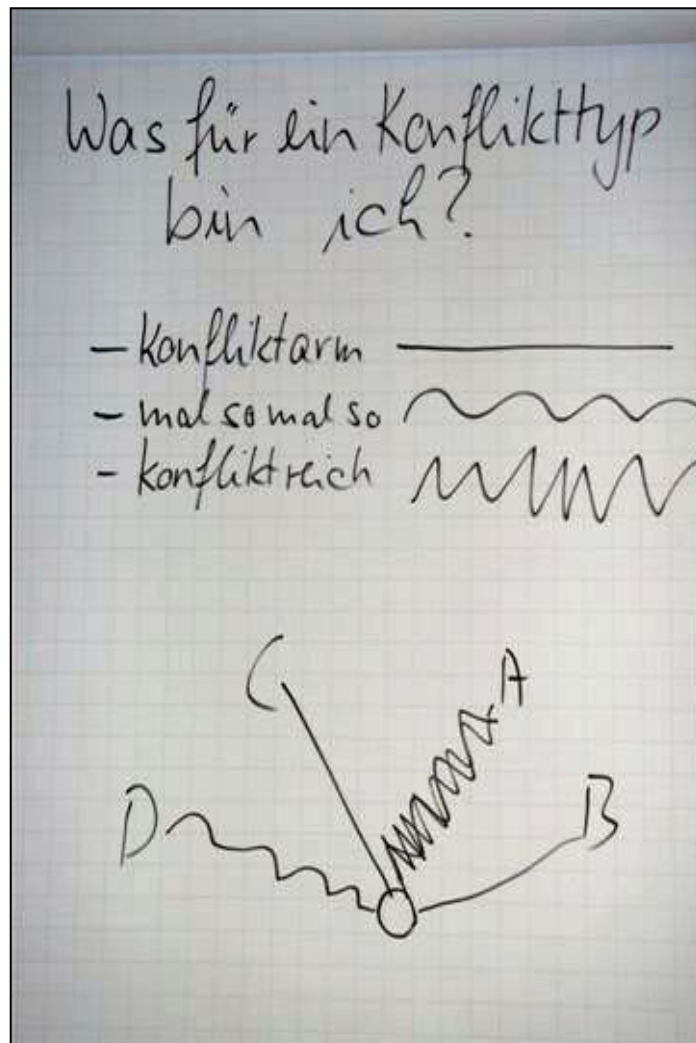 Was für ein Konflikttyp
bin ich?
- Konfliktarm
- mal so mal so
- Konfliktreich
C
A
D
B